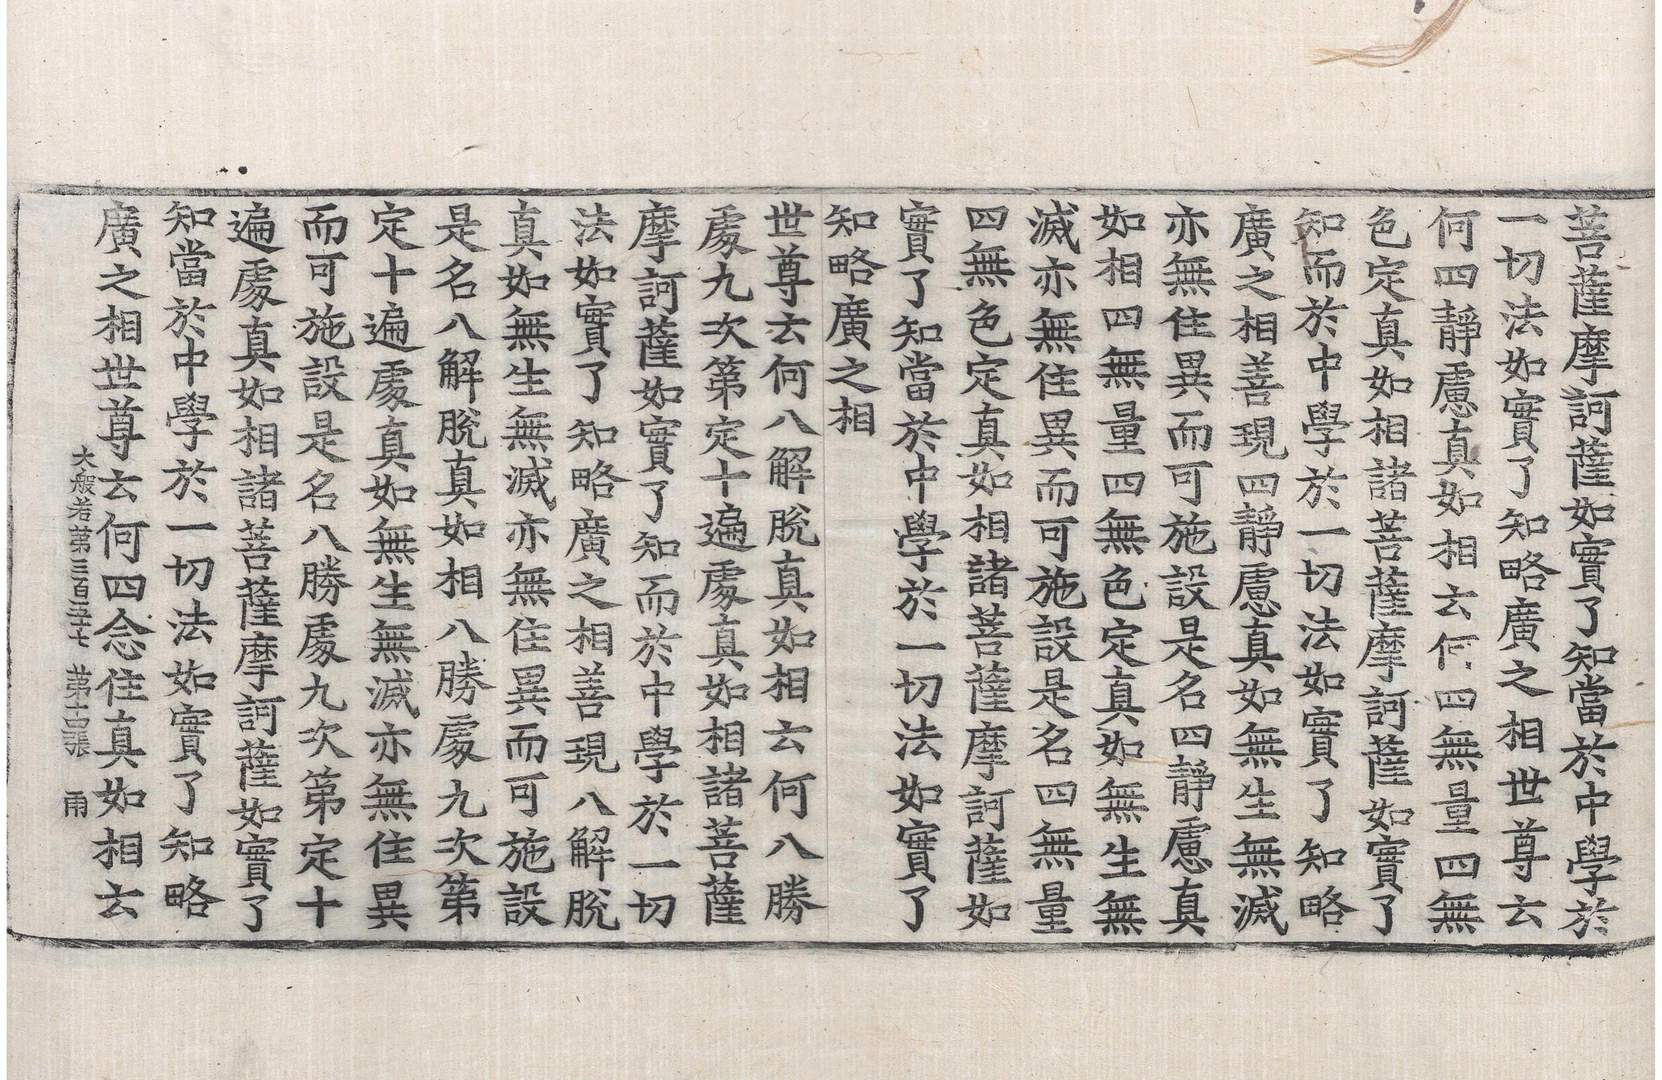 菩薩摩訶薩如實了知當於中學於
一切法如實了知略廣之相世尊云
何四靜慮真如相云何四無量四無
色定真如相諸菩薩摩訶薩如實了
知而於中學於一切法如實了知略
廣之相善現四靜慮真如無生無滅
亦無住異而可施設是名四靜慮真
如相四無量四無色定真如無生無
滅亦無住異而可施設是名四無量
四無色定真如相諸菩薩摩訶薩如
實了知當於中學於一切法如實了
知略廣之相
世尊云何八解脫真如相云何八勝
處九次第定十遍處真如相諸菩薩
摩訶薩如實了知而於中學於一切
法如實了知略廣之相善現八解脫
真如無生無滅亦無住異而可施設
是名八解脫真如相八勝處九次第
定十遍處真如無生無滅亦無住異
而可施設是名八勝處九次第定十
遍處真如相諸菩薩摩訶薩如實了
知當於中學於一切法如實了知略
廣之相世尊云何四念住真如相云
大般若第三百五十七 第十四張 雨